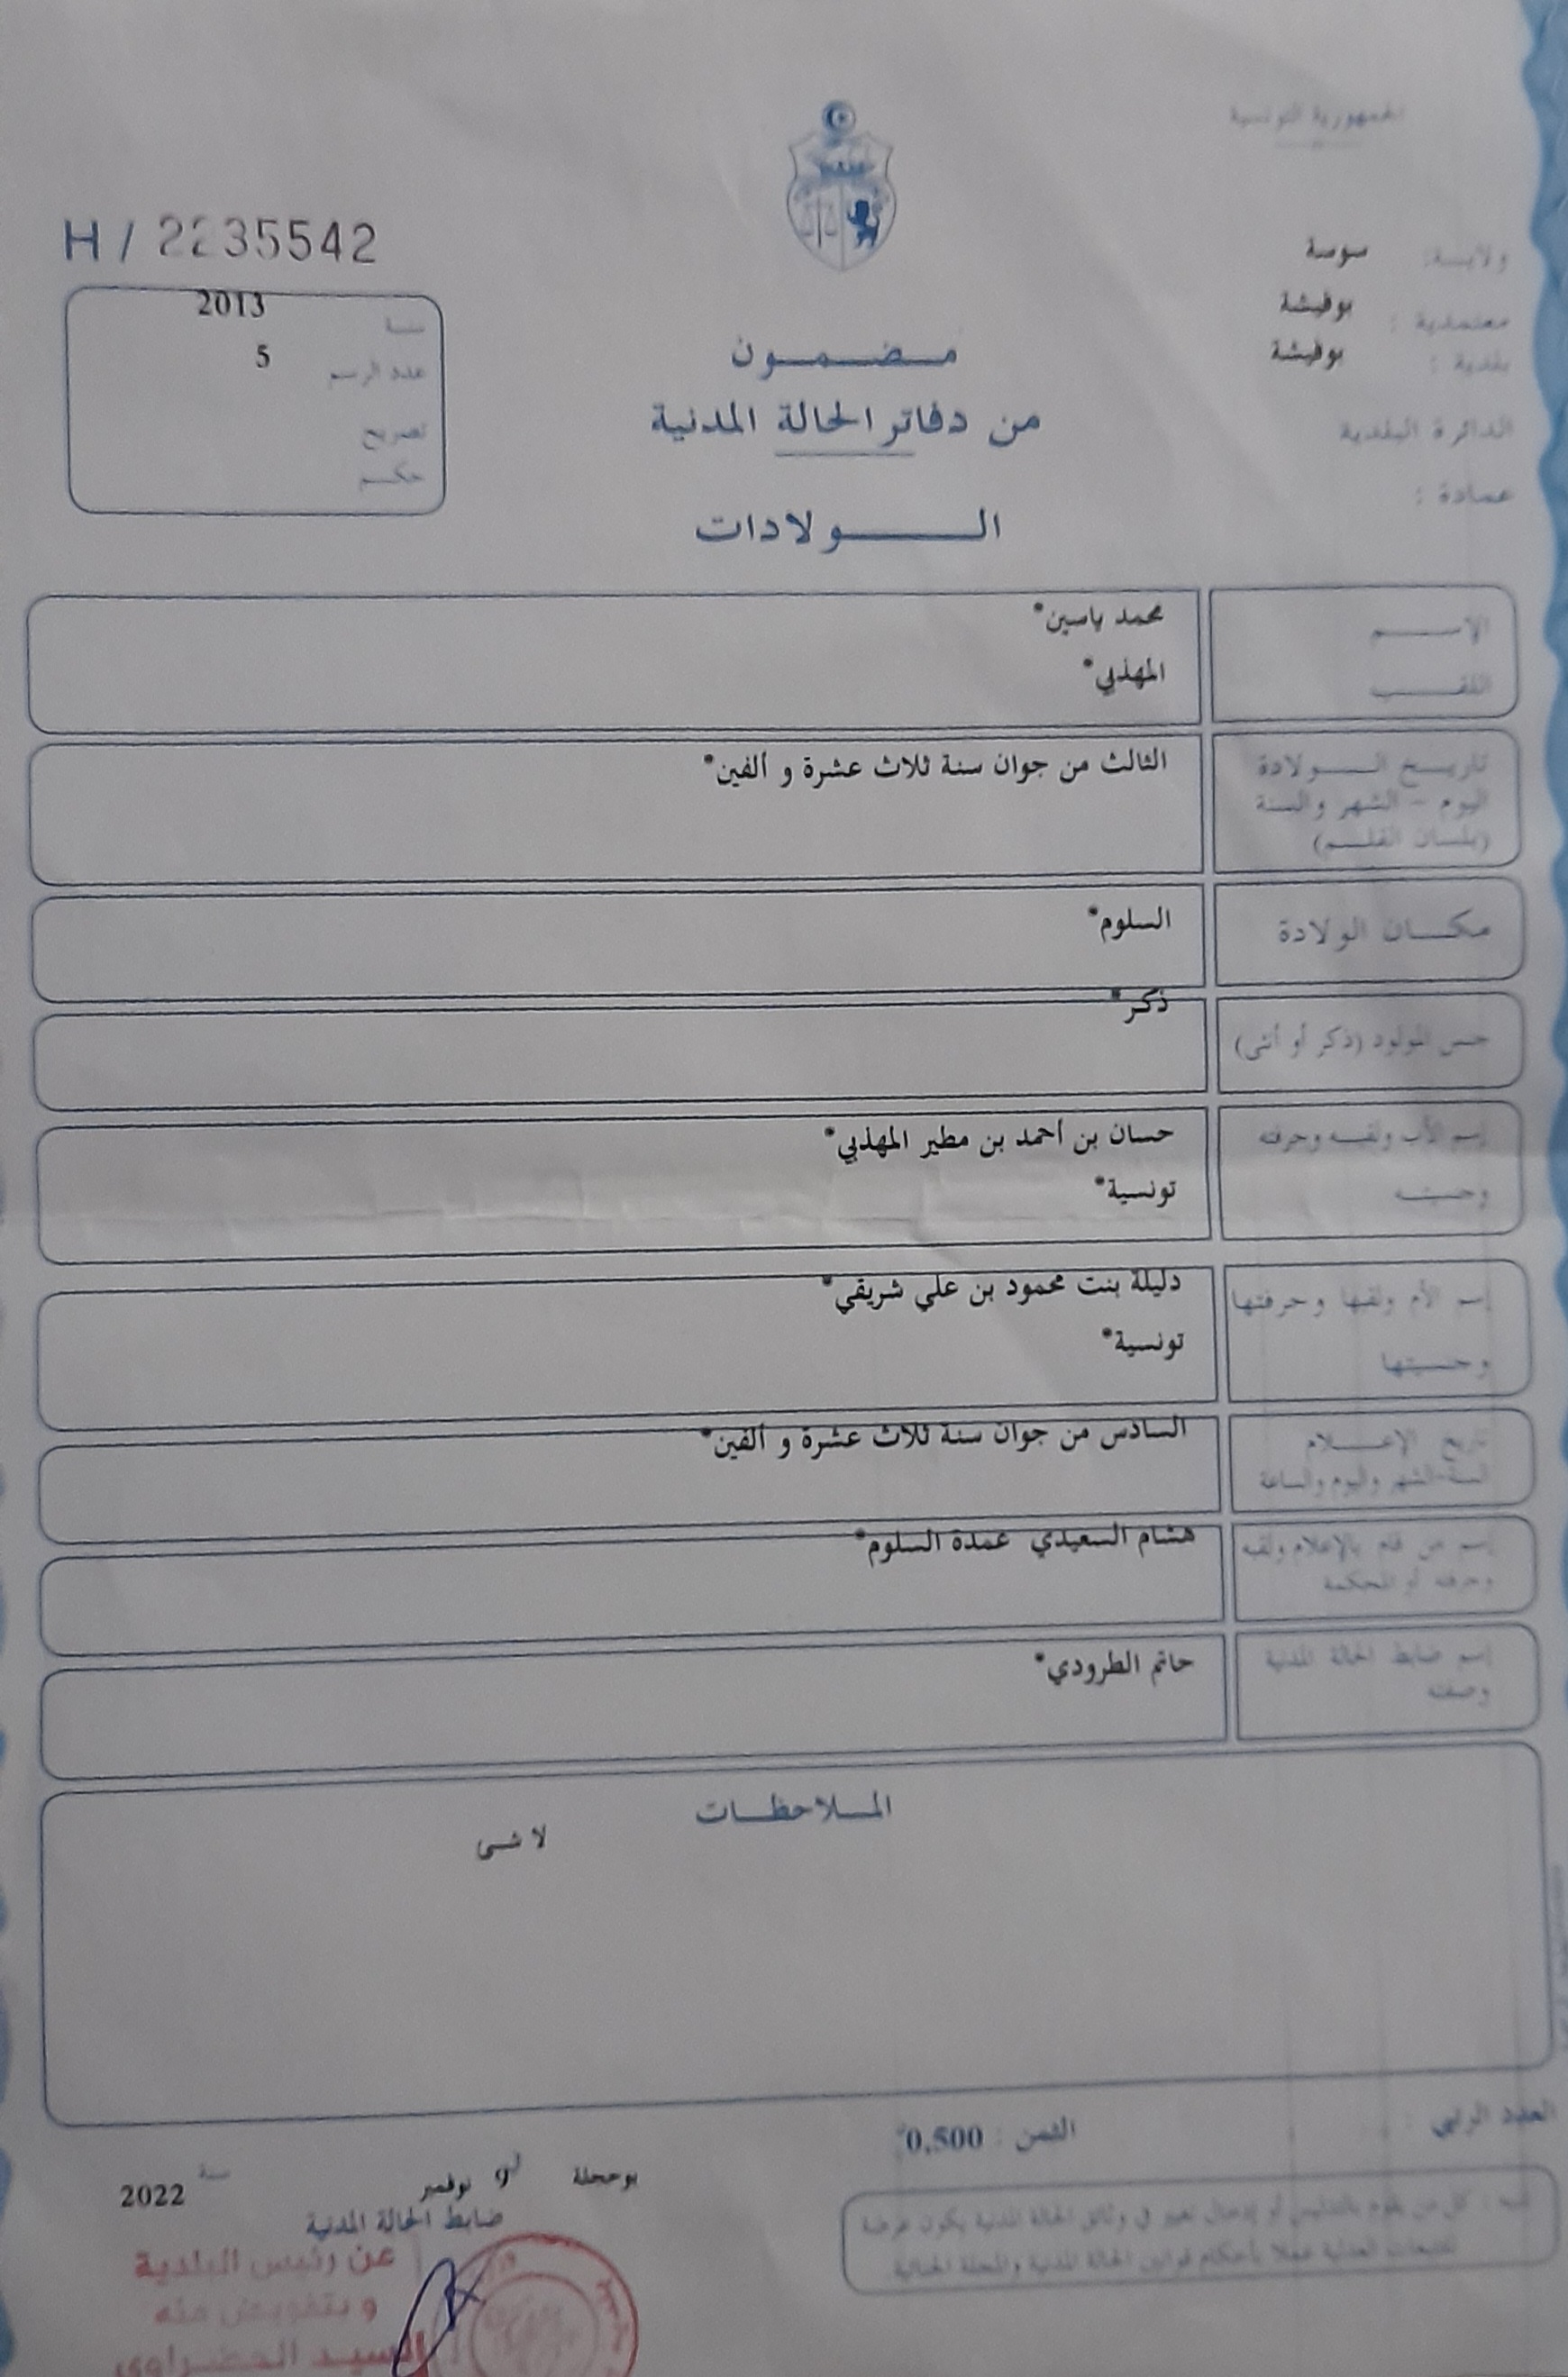 الجمهورية التونسية
H / 2235542
ولايـة: سوسة
معتمدية : بوفيشة
بلدية : بوفيشة
الدائرة البلدية
عمادة :
سنة 2013
عدد الرسم 5
تصريح
حكم
مضمون
من دفاتر الحالة المدنية
الولادات
الإسم محمد ياسين*
اللقب المهذبي*
تاريخ الولادة الثالث من جوان سنة ثلاث عشرة و ألفين*
اليوم - الشهر والسنة
(بلسان القلم)
مكان الولادة السلوم*
جنس المولود (ذكر أو أنثى) ذكر*
إسم الأب ولقبه وحرفته حسان بن أحمد بن مطير المهذبي*
وجنسيته تونسية*
إسم الأم ولقبها وحرفتها دليلة بنت محمود بن علي شريقي*
وجنسيتها تونسية*
تاريخ الإعلام السادس من جوان سنة ثلاث عشرة و ألفين*
السنة-الشهر واليوم والساعة
إسم من قام بالإعلام ولقبه هشام السعيدي عمدة السلوم*
وحرفته أو المحكمة
إسم ضابط الحالة المدنية حاتم الطرودي*
وصفته
الملاحظات
لا شى
العدد الرتبي
الثمن : 0,500
تنبيه : كل من يقوم بالتدليس أو إدخال تغيير في وثائق الحالة المدنية يكون عرضة
للتتبعات العدلية عملا بأحكام قوانين الحالة المدنية والمجلة الجنائية
بوحجلة في 9 نوفمبر سنة 2022
ضابط الحالة المدنية
عن رئيس البلدية
و بتفويض منه
السيد الخضراوي